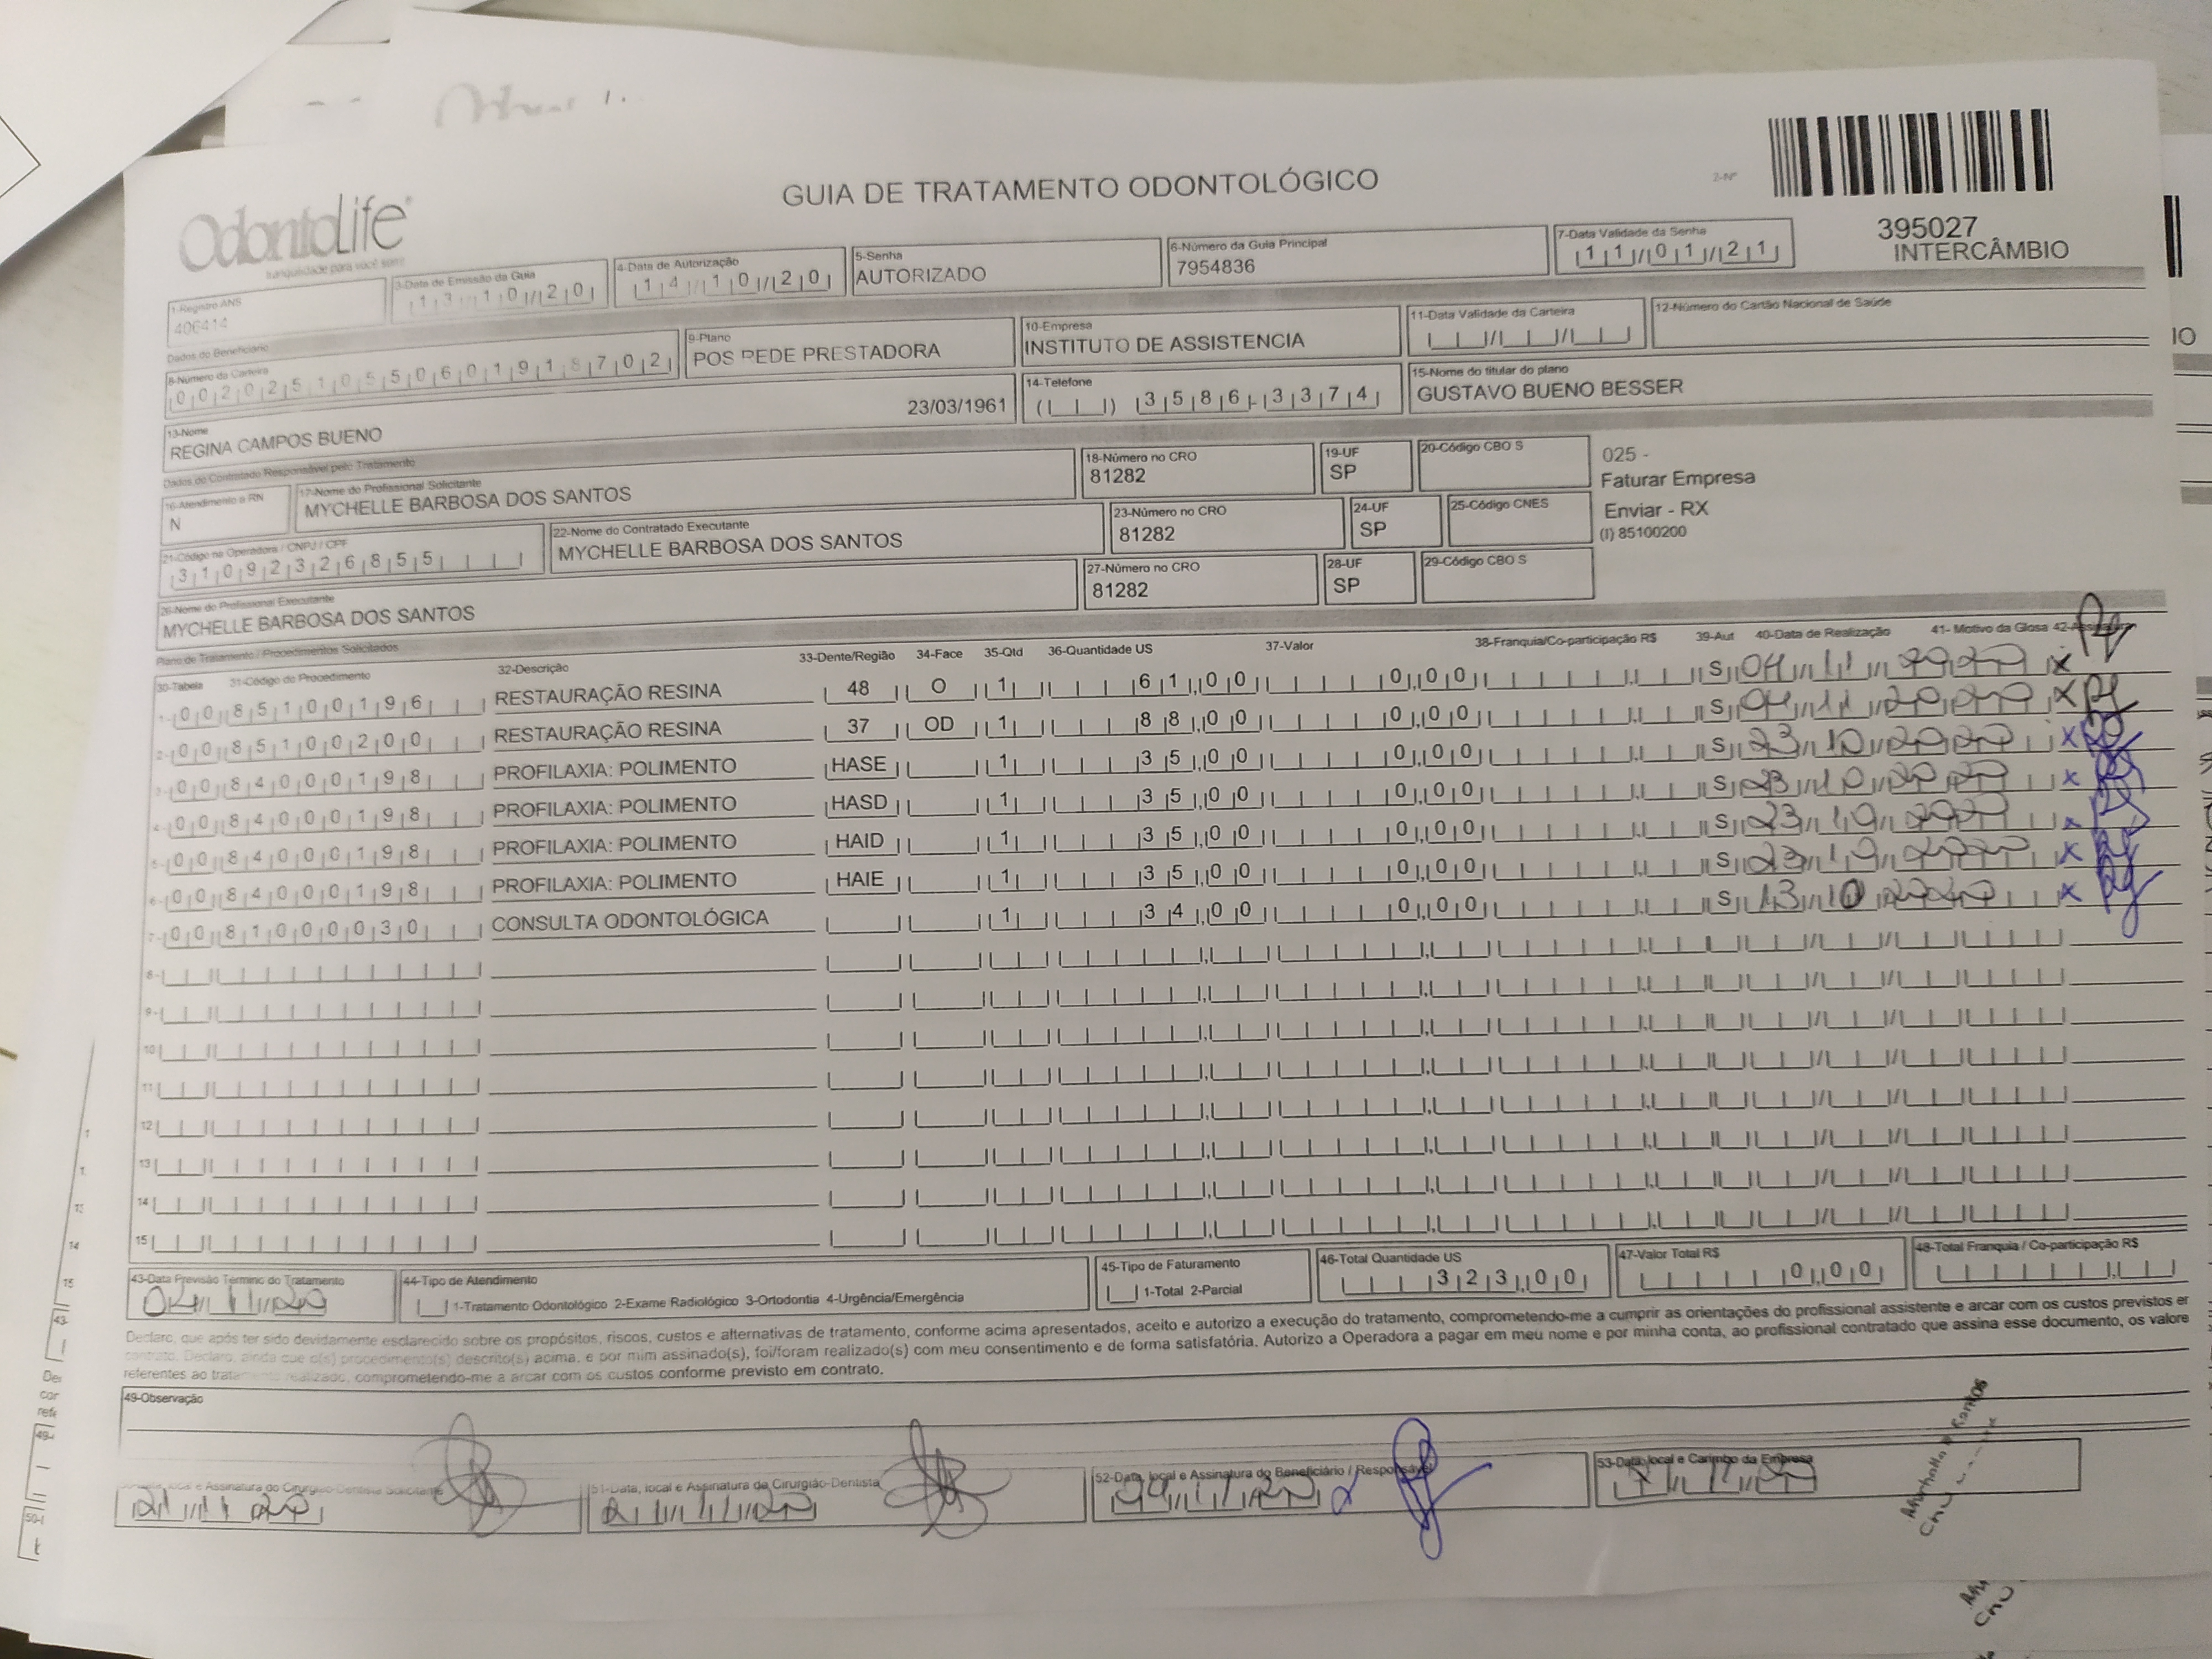 GUIA DE TRATAMENTO ODONTOLÓGICO
2-Nº
OdontoLife
tranquilidade para você sorrir
395027
INTERCÂMBIO
1-Registro ANS
406414
3-Data de Emissão da Guia
13/10/20
4-Data de Autorização
14/10/20
5-Senha
AUTORIZADO
6-Número da Guia Principal
7954836
7-Data Validade da Senha
11/01/21
Dados do Beneficiário
8-Número da Carteira
00202510550601918702
9-Plano
POS REDE PRESTADORA
10-Empresa
INSTITUTO DE ASSISTENCIA
11-Data Validade da Carteira
12-Número do Cartão Nacional de Saúde
13-Nome
REGINA CAMPOS BUENO
23/03/1961
14-Telefone
( ) 3586-3374
15-Nome do titular do plano
GUSTAVO BUENO BESSER
Dados do Contratado Responsável pelo Tratamento
16-Atendimento a RN
N
17-Nome do Profissional Solicitante
MYCHELLE BARBOSA DOS SANTOS
18-Número no CRO
81282
19-UF
SP
20-Código CBO S
025 -
Faturar Empresa
Enviar - RX
(I) 85100200
21-Código na Operadora / CNPJ / CPF
31092326855
22-Nome do Contratado Executante
MYCHELLE BARBOSA DOS SANTOS
23-Número no CRO
81282
24-UF
SP
25-Código CNES
26-Nome do Profissional Executante
MYCHELLE BARBOSA DOS SANTOS
27-Número no CRO
81282
28-UF
SP
29-Código CBO S
Plano de Tratamento / Procedimentos Solicitados
30-Tabela 31-Código do Procedimento 32-Descrição 33-Dente/Região 34-Face 35-Qtd 36-Quantidade US 37-Valor 38-Franquia/Co-participação R$ 39-Aut 40-Data de Realização 41- Motivo da Glosa 42-Assinatura
1- 00 85100196 RESTAURAÇÃO RESINA 48 O 1 61,00 0,00 S 04/11/2020 x
2- 00 85100200 RESTAURAÇÃO RESINA 37 OD 1 88,00 0,00 S 04/11/2020 x
3- 00 84000198 PROFILAXIA: POLIMENTO HASE 1 35,00 0,00 S 23/10/2020 x
4- 00 84000198 PROFILAXIA: POLIMENTO HASD 1 35,00 0,00 S 23/10/2020 x
5- 00 84000198 PROFILAXIA: POLIMENTO HAID 1 35,00 0,00 S 23/10/2020 x
6- 00 84000198 PROFILAXIA: POLIMENTO HAIE 1 35,00 0,00 S 23/10/2020 x
7- 00 81000030 CONSULTA ODONTOLÓGICA 1 34,00 0,00 S 13/10/2020 x
8-
9-
10
11
12
13
14
15
43-Data Previsão Término do Tratamento
04/11/20
44-Tipo de Atendimento
1-Tratamento Odontológico 2-Exame Radiológico 3-Ortodontia 4-Urgência/Emergência
45-Tipo de Faturamento
1-Total 2-Parcial
46-Total Quantidade US
323,00
47-Valor Total R$
0,00
48-Total Franquia / Co-participação R$
Declaro, que após ter sido devidamente esclarecido sobre os propósitos, riscos, custos e alternativas de tratamento, conforme acima apresentados, aceito e autorizo a execução do tratamento, comprometendo-me a cumprir as orientações do profissional assistente e arcar com os custos previstos em
contrato. Declaro, ainda que o(s) procedimento(s) descrito(s) acima, e por mim assinado(s), foi/foram realizado(s) com meu consentimento e de forma satisfatória. Autorizo a Operadora a pagar em meu nome e por minha conta, ao profissional contratado que assina esse documento, os valore
referentes ao tratamento realizado, comprometendo-me a arcar com os custos conforme previsto em contrato.
49-Observação
50-Data, local e Assinatura do Cirurgião-Dentista Solicitante
51-Data, local e Assinatura do Cirurgião-Dentista
52-Data, local e Assinatura do Beneficiário / Responsável
53-Data, local e Carimbo da Empresa